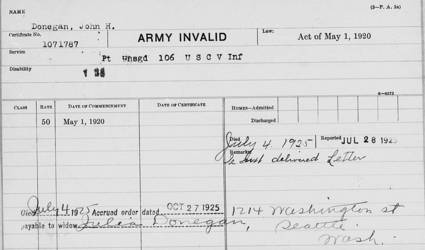 NAME
(3-P. A. 3a)
Donegan, John H.
Certificate No.
1071787
ARMY INVALID
Law:
Act of May 1, 1920
Service
Pt Unasgd 106 U S C V Inf
Disability
1
6-6272
CLASS RATE DATE OF COMMENCEMENT DATE OF CERTIFICATE
HOMES—Admitted
Discharged
50 May 1, 1920
Died July 4, 1925 Reported JUL 28 192
Remarks
delivered Letter
Died July 4, 1925 Accrued order dated OCT 27 1925
payable to widow Julia Donegan,
1214 Washington st
Seattle
Wash.